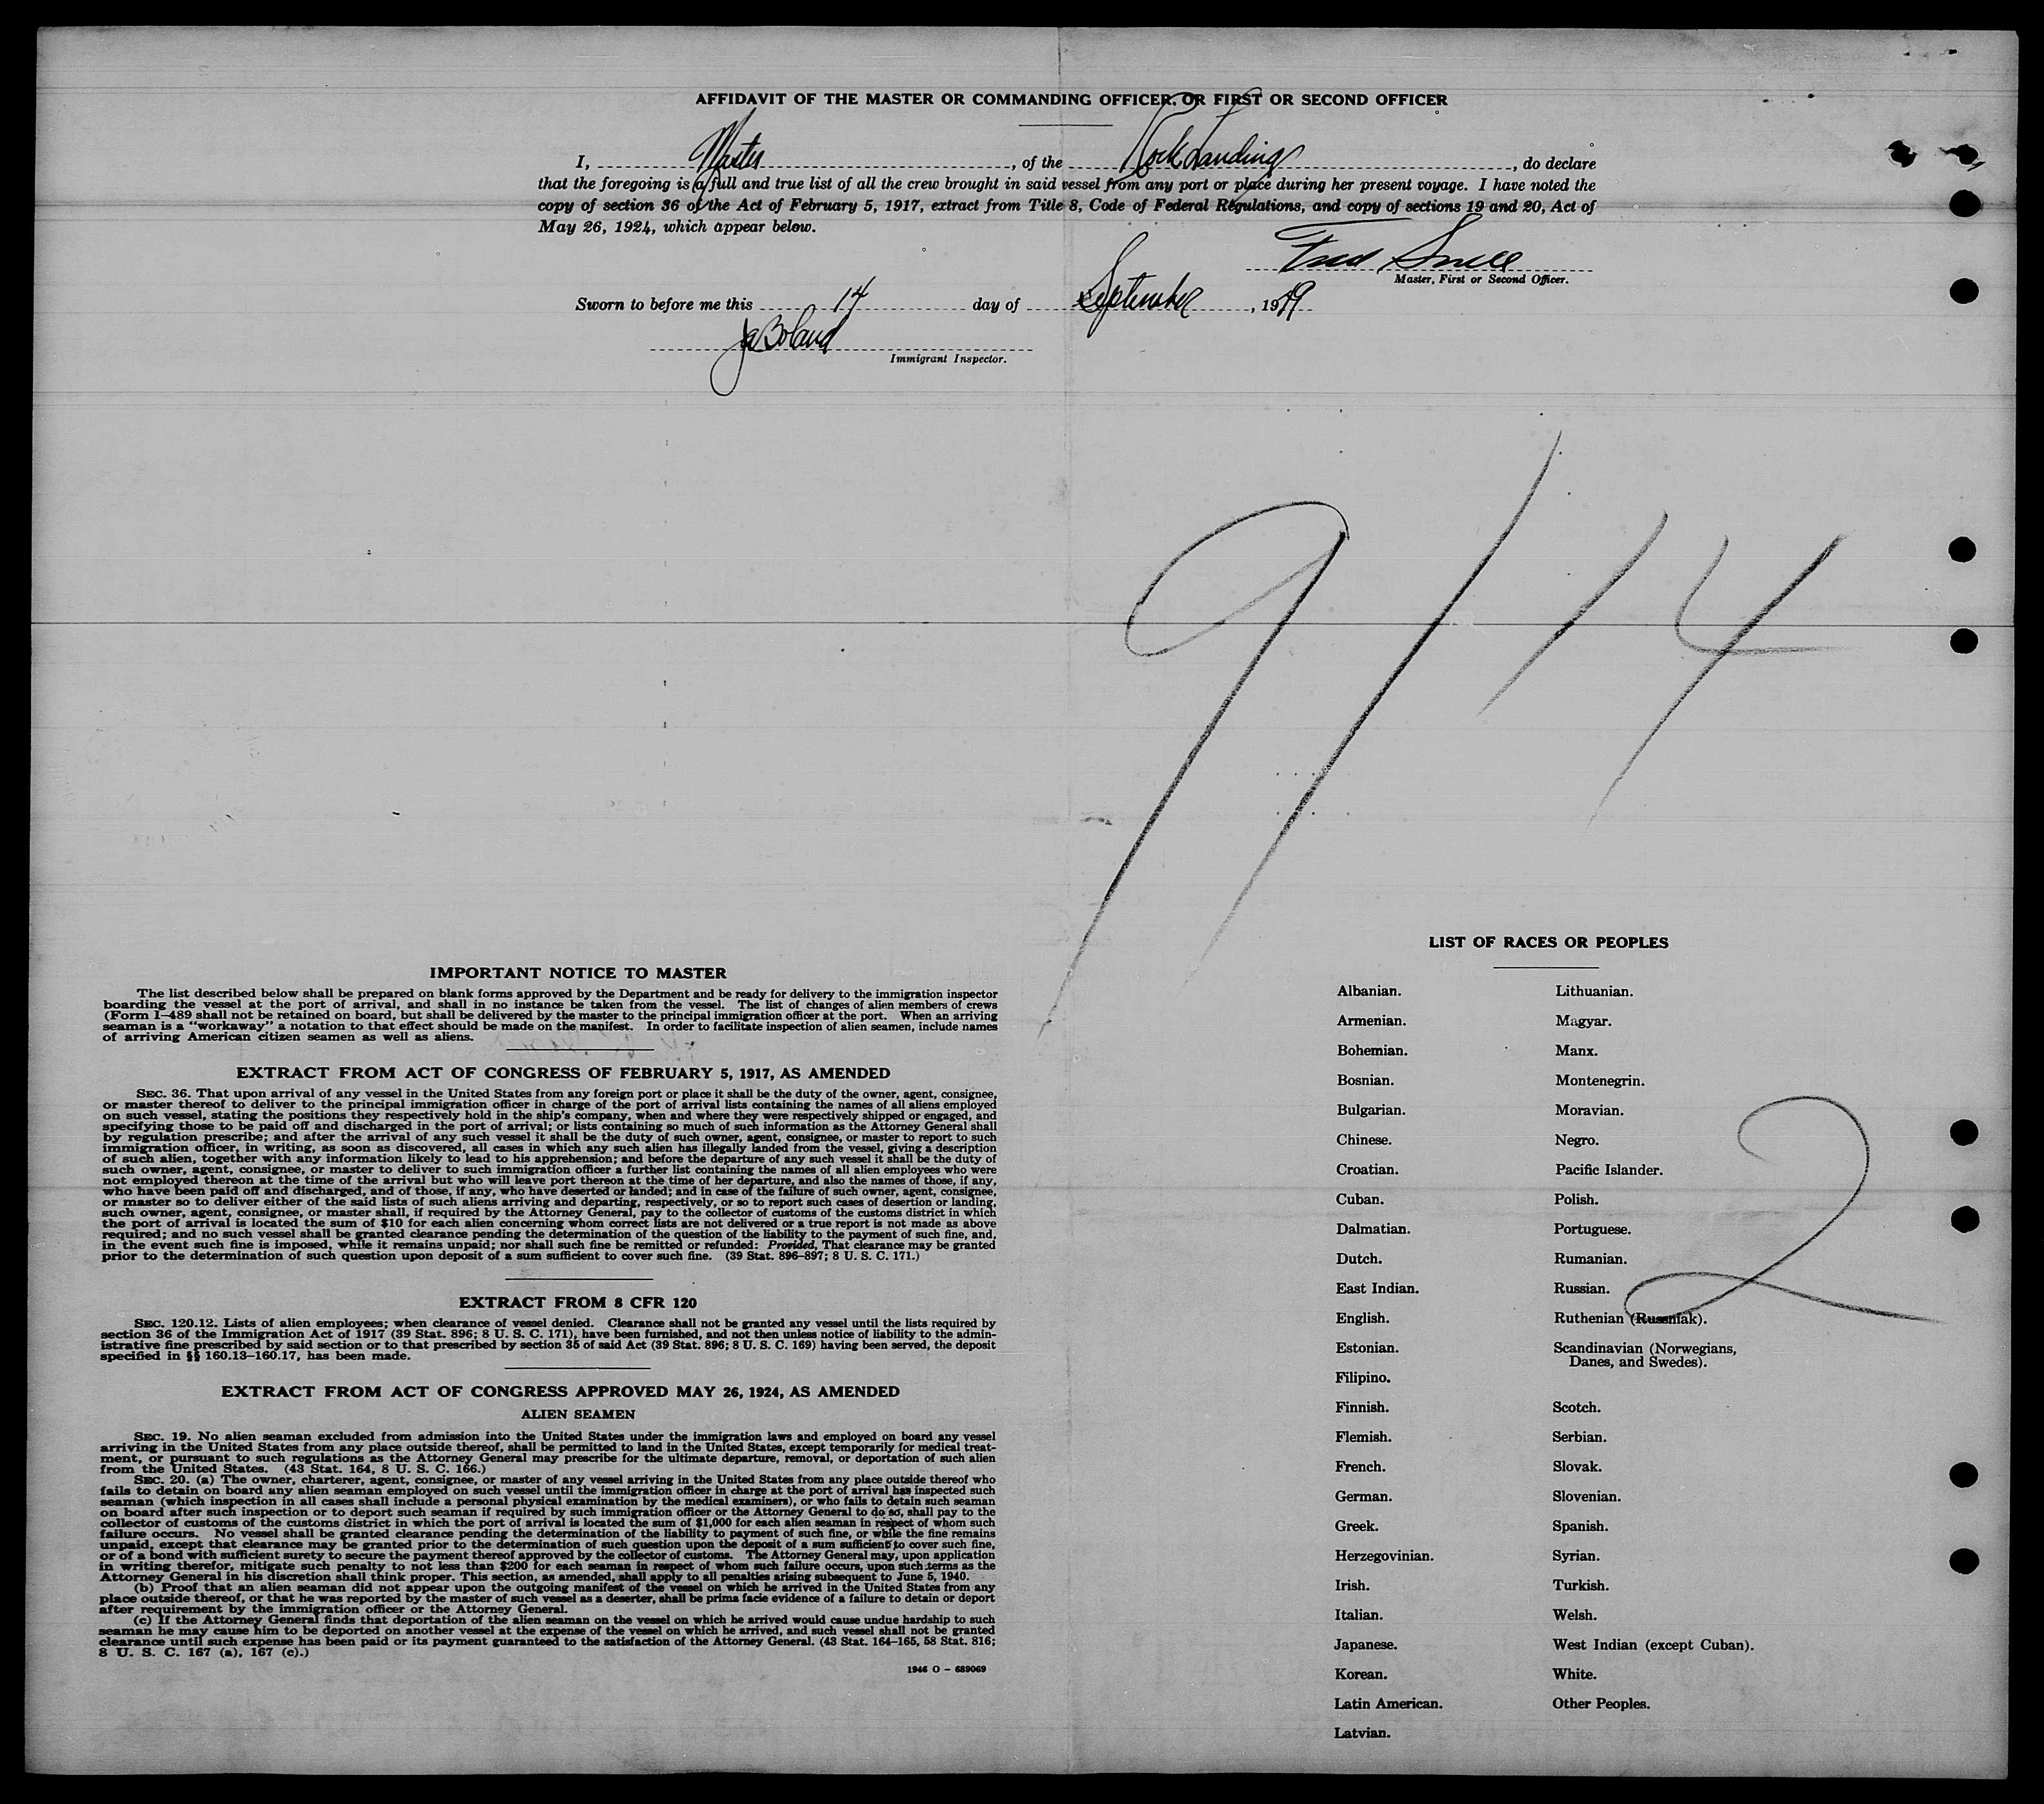 AFFIDAVIT OF THE MASTER OR COMMANDING OFFICER, OR FIRST OR SECOND OFFICER
I, Master, of the Rock Landing, do declare
that the foregoing is a full and true list of all the crew brought in said vessel from any port or place during her present voyage. I have noted the
copy of section 36 of the Act of February 5, 1917, extract from Title 8, Code of Federal Regulations, and copy of sections 19 and 20, Act of
May 26, 1924, which appear below.
Fred Snell
Master, First or Second Officer.
Sworn to before me this 14 day of September, 1949
Ja Boland
Immigrant Inspector.
9/14
IMPORTANT NOTICE TO MASTER
The list described below shall be prepared on blank forms approved by the Department and be ready for delivery to the immigration inspector
boarding the vessel at the port of arrival, and shall in no instance be taken from the vessel. The list of changes of alien members of crews
(Form I-489 shall not be retained on board, but shall be delivered by the master to the principal immigration officer at the port. When an arriving
seaman is a "workaway" a notation to that effect should be made on the manifest. In order to facilitate inspection of alien seamen, include names
of arriving American citizen seamen as well as aliens.
EXTRACT FROM ACT OF CONGRESS OF FEBRUARY 5, 1917, AS AMENDED
SEC. 36. That upon arrival of any vessel in the United States from any foreign port or place it shall be the duty of the owner, agent, consignee,
or master thereof to deliver to the principal immigration officer in charge of the port of arrival lists containing the names of all aliens employed
on such vessel, stating the positions they respectively hold in the ship's company, when and where they were respectively shipped or engaged, and
specifying those to be paid off and discharged in the port of arrival; or lists containing so much of such information as the Attorney General shall
by regulation prescribe; and after the arrival of any such vessel it shall be the duty of such owner, agent, consignee, or master to report to such
immigration officer, in writing, as soon as discovered, all cases in which any such alien has illegally landed from the vessel, giving a description
of such alien, together with any information likely to lead to his apprehension; and before the departure of any such vessel it shall be the duty of
such owner, agent, consignee, or master to deliver to such immigration officer a further list containing the names of all alien employees who were
not employed thereon at the time of the arrival but who will leave port thereon at the time of her departure, and also the names of those, if any,
who have been paid off and discharged, and of those, if any, who have deserted or landed; and in case of the failure of such owner, agent, consignee,
or master so to deliver either of the said lists of such aliens arriving and departing, respectively, or so to report such cases of desertion or landing,
such owner, agent, consignee, or master shall, if required by the Attorney General, pay to the collector of customs of the customs district in which
the port of arrival is located the sum of $10 for each alien concerning whom correct lists are not delivered or a true report is not made as above
required; and no such vessel shall be granted clearance pending the determination of the question of the liability to the payment of such fine, and,
in the event such fine is imposed, while it remains unpaid; nor shall such fine be remitted or refunded: Provided, That clearance may be granted
prior to the determination of such question upon deposit of a sum sufficient to cover such fine. (39 Stat. 896-897; 8 U. S. C. 171.)
EXTRACT FROM 8 CFR 120
SEC. 120.12. Lists of alien employees; when clearance of vessel denied. Clearance shall not be granted any vessel until the lists required by
section 36 of the Immigration Act of 1917 (39 Stat. 896; 8 U. S. C. 171), have been furnished, and not then unless notice of liability to the admin-
istrative fine prescribed by said section or to that prescribed by section 35 of said Act (39 Stat. 896; 8 U. S. C. 169) having been served, the deposit
specified in §§ 160.13-160.17, has been made.
EXTRACT FROM ACT OF CONGRESS APPROVED MAY 26, 1924, AS AMENDED
ALIEN SEAMEN
SEC. 19. No alien seaman excluded from admission into the United States under the immigration laws and employed on board any vessel
arriving in the United States from any place outside thereof, shall be permitted to land in the United States, except temporarily for medical treat-
ment, or pursuant to such regulations as the Attorney General may prescribe for the ultimate departure, removal, or deportation of such alien
from the United States. (43 Stat. 164, 8 U. S. C. 166.)
SEC. 20. (a) The owner, charterer, agent, consignee, or master of any vessel arriving in the United States from any place outside thereof who
fails to detain on board any alien seaman employed on such vessel until the immigration officer in charge at the port of arrival has inspected such
seaman (which inspection in all cases shall include a personal physical examination by the medical examiners), or who fails to detain such seaman
on board after such inspection or to deport such seaman if required by such immigration officer or the Attorney General to do so, shall pay to the
collector of customs of the customs district in which the port of arrival is located the sum of $1,000 for each alien seaman in respect of whom such
failure occurs. No vessel shall be granted clearance pending the determination of the liability to payment of such fine, or while the fine remains
unpaid, except that clearance may be granted prior to the determination of such question upon the deposit of a sum sufficient to cover such fine,
or of a bond with sufficient surety to secure the payment thereof approved by the collector of customs. The Attorney General may, upon application
in writing therefor, mitigate such penalty to not less than $200 for each seaman in respect of whom such failure occurs, upon such terms as the
Attorney General in his discretion shall think proper. This section, as amended, shall apply to all penalties arising subsequent to June 5, 1940.
(b) Proof that an alien seaman did not appear upon the outgoing manifest of the vessel on which he arrived in the United States from any
place outside thereof, or that he was reported by the master of such vessel as a deserter, shall be prima facie evidence of a failure to detain or deport
after requirement by the immigration officer or the Attorney General.
(c) If the Attorney General finds that deportation of the alien seaman on the vessel on which he arrived would cause undue hardship to such
seaman he may cause him to be deported on another vessel at the expense of the vessel on which he arrived, and such vessel shall not be granted
clearance until such expense has been paid or its payment guaranteed to the satisfaction of the Attorney General. (43 Stat. 164-165, 58 Stat. 816;
8 U. S. C. 167 (a), 167 (c).)
1946 O - 689069
LIST OF RACES OR PEOPLES
Albanian.
Armenian.
Bohemian.
Bosnian.
Bulgarian.
Chinese.
Croatian.
Cuban.
Dalmatian.
Dutch.
East Indian.
English.
Estonian.
Filipino.
Finnish.
Flemish.
French.
German.
Greek.
Herzegovinian.
Irish.
Italian.
Japanese.
Korean.
Latin American.
Latvian.
Lithuanian.
Magyar.
Manx.
Montenegrin.
Moravian.
Negro.
Pacific Islander.
Polish.
Portuguese.
Rumanian.
Russian.
Ruthenian (Russniak).
Scandinavian (Norwegians,
Danes, and Swedes).
Scotch.
Serbian.
Slovak.
Slovenian.
Spanish.
Syrian.
Turkish.
Welsh.
West Indian (except Cuban).
White.
Other Peoples.
2